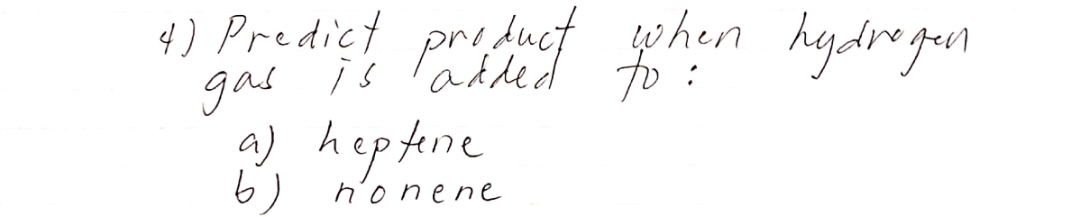 4) Predict product when hydrogen
gas is added to :
a) heptene
b) nonene